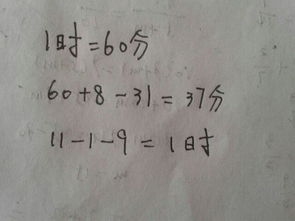 1时=60分
60+8-31=37分
11-1-9=1时